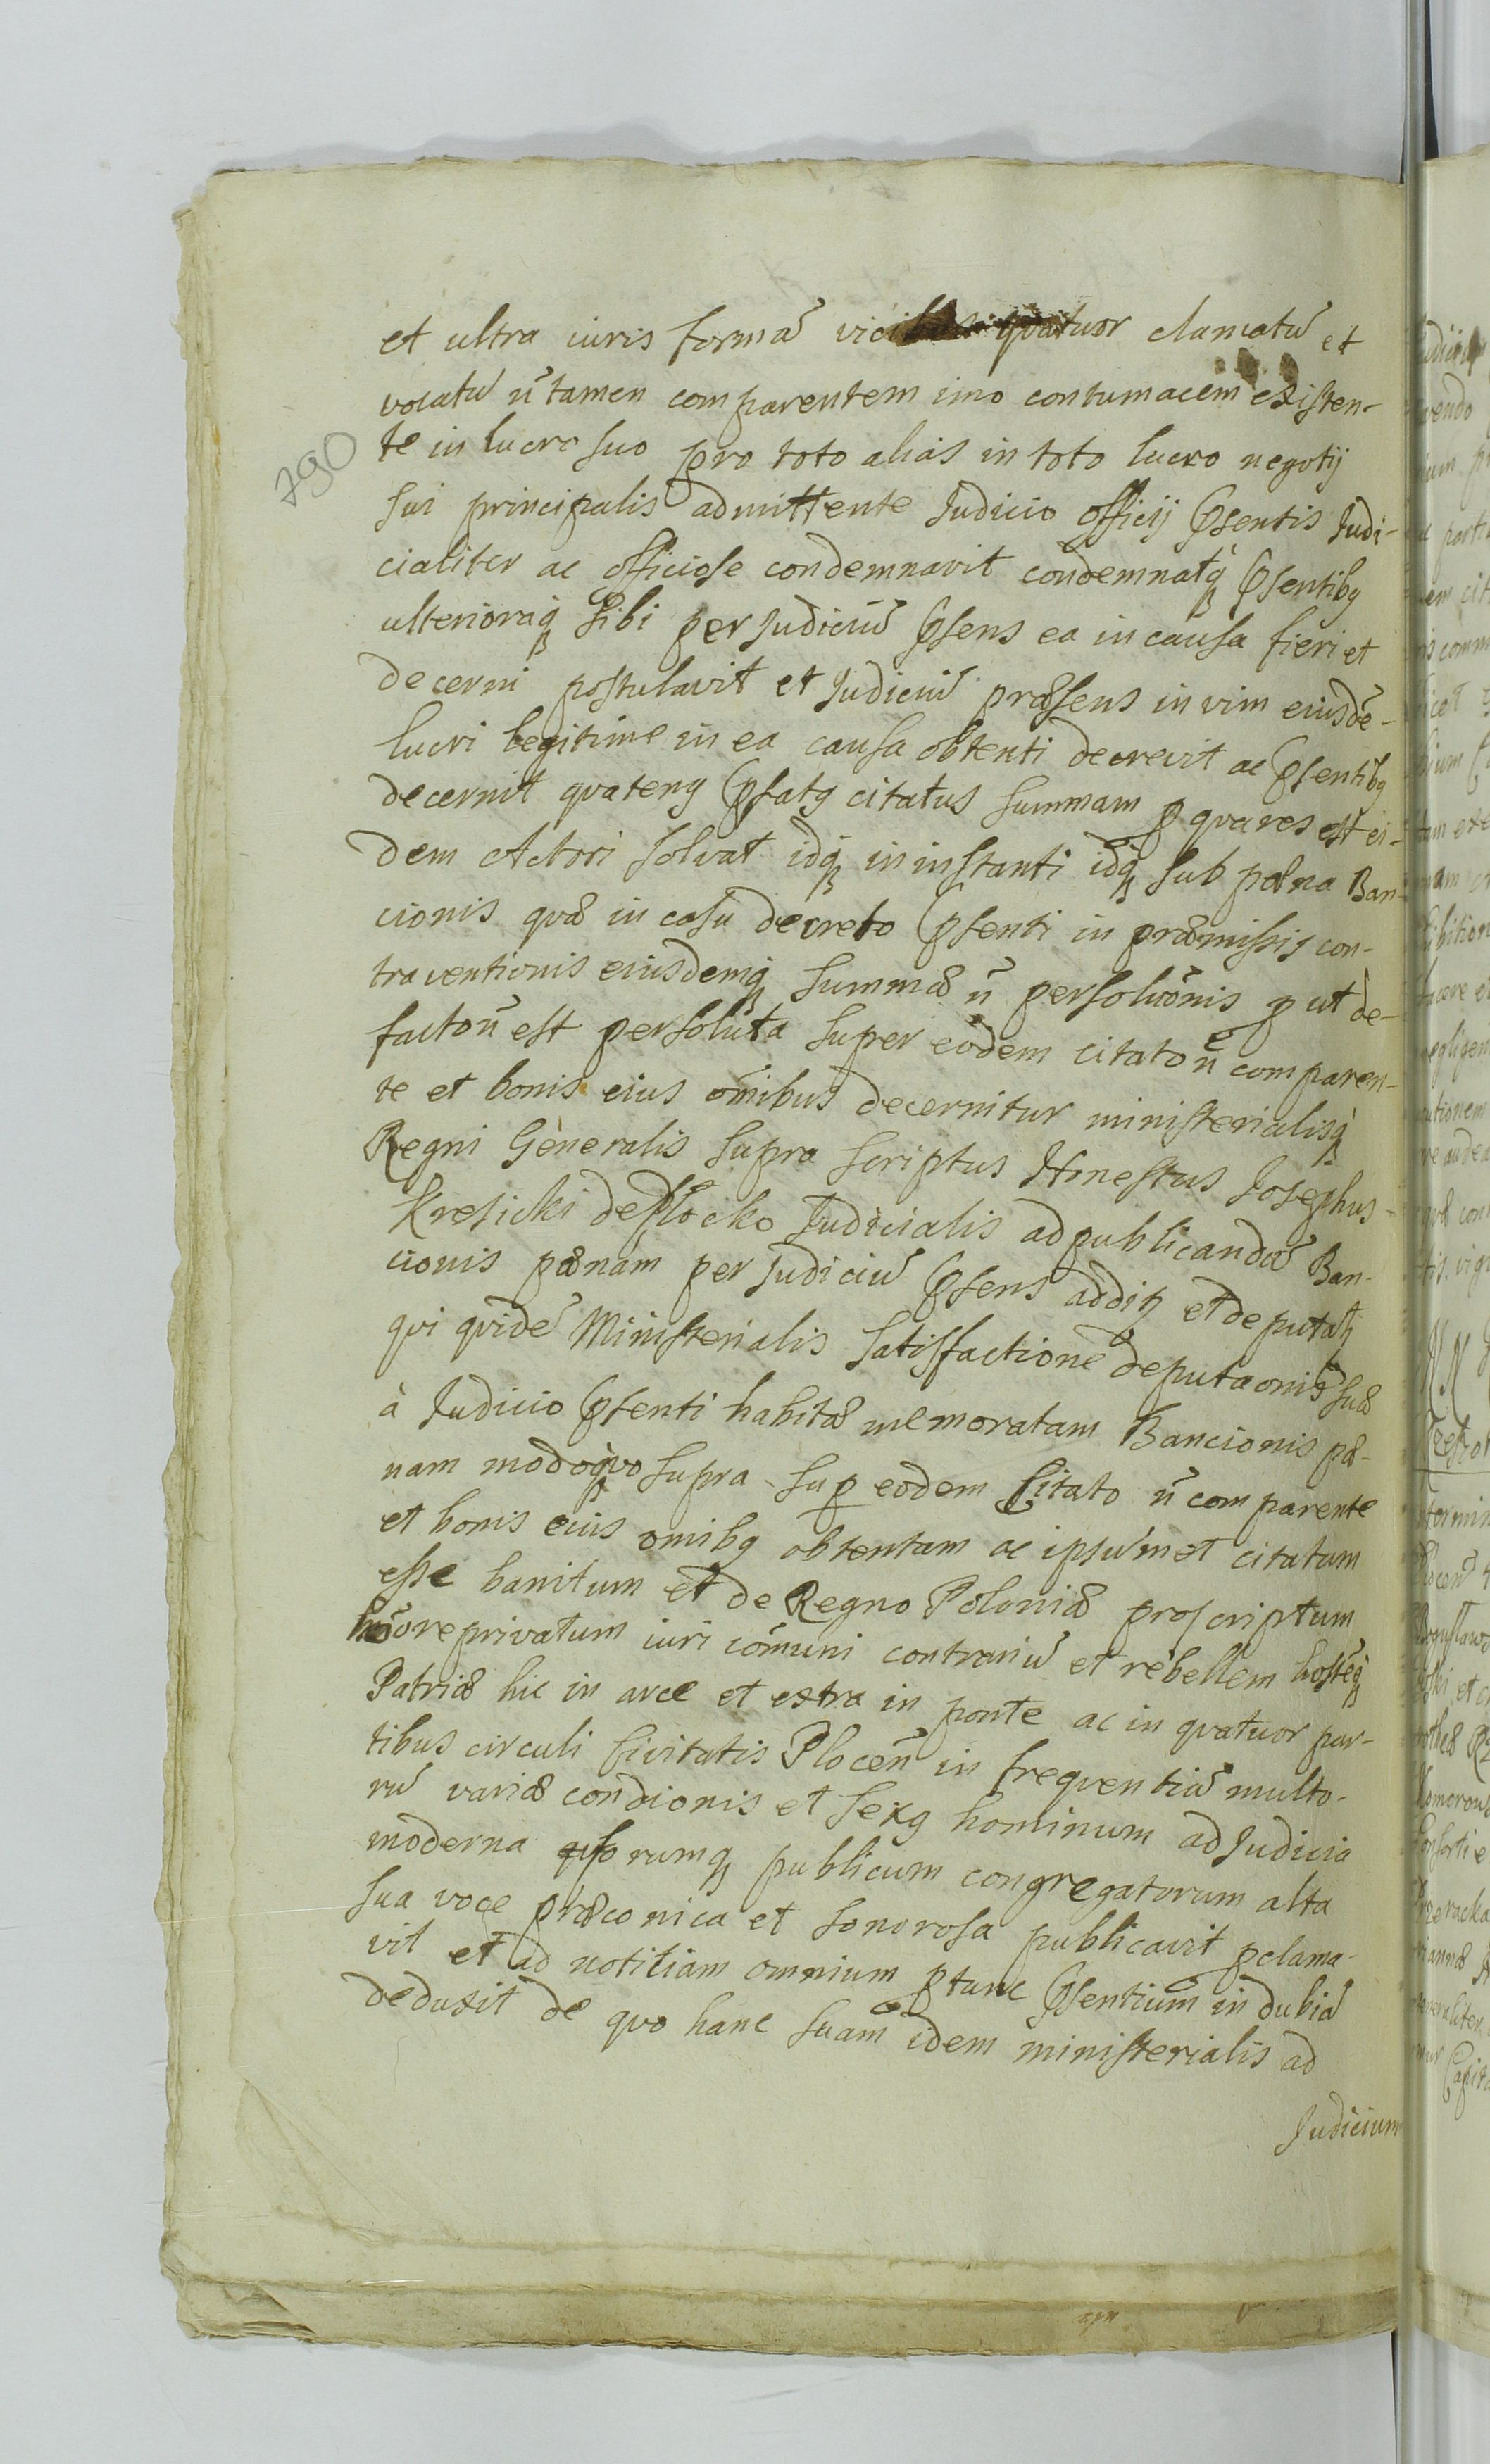 790
et ultra iuris formā vicibus quatuor clamatū et
vocatū n̄ tamen comparentem imo contumacem existen-
te in lucro suo pro toto alias in toto lucro negotij
sui principalis admittente Judicio officij Psentis Judi-
cialiter ac officiose condemnavit condemnatq̨ Psentibq
ulterioraq̨ sibi per Judiciū Psens ea in causa fieri et
decerni postulavit et Judiciū præsens in vim eiusdē-
lucri legitime in ea causa obtenti decrevit ac Psentibq
decernit quatenq Psatq citatus summam p qua res est ei-
dem Actori solvat idq̨ in instanti idq̨ sub pæna Ban-
cionis quæ in casu decreto Psenti in præmissis con-
traventionis eiusdemq̨ summæ n̄ persoluōnis p ut de-
facto n̄ est persoluta super eodem citato n̄ comparen-
te et bonis eius omībus decernitur ministerialisq̨
Regni Generalis supra scriptus Honestus Josephus-
Kresicki de Plocko Judicialis ad publicandā Ban-
cionis pænam per Judiciū Psens additq et deputatq
qui quidē Ministerialis satisfactione deputaōnis suæ
à Judicio Psenti habitæ memoratam Bancionis pæ-
nam modoq̨ quo supra sup eodem Citato n̄ comparente
et bonis eius omibq obtentam ac ipsummet citatum
esse banitum et de Regno Poloniæ proscriptum
honore privatum iuri cōmuni contrariū et rebellem hostēq̨
Patriæ hic in arce et extra in ponte ac in quatuor par-
tibus circuli Civitatis Plocen̄ in frequentiā multo-
rū variæ condionis et sexq hominum ad Judicia
moderna rumq̨ publicum congregatorum alta
sua voce præconica et sonorosa publicavit pclama-
vit et ad notitiam omnium ptunc Psentium in dubiā
deduxit de quo hanc suam idem ministerialis ad
Judicium